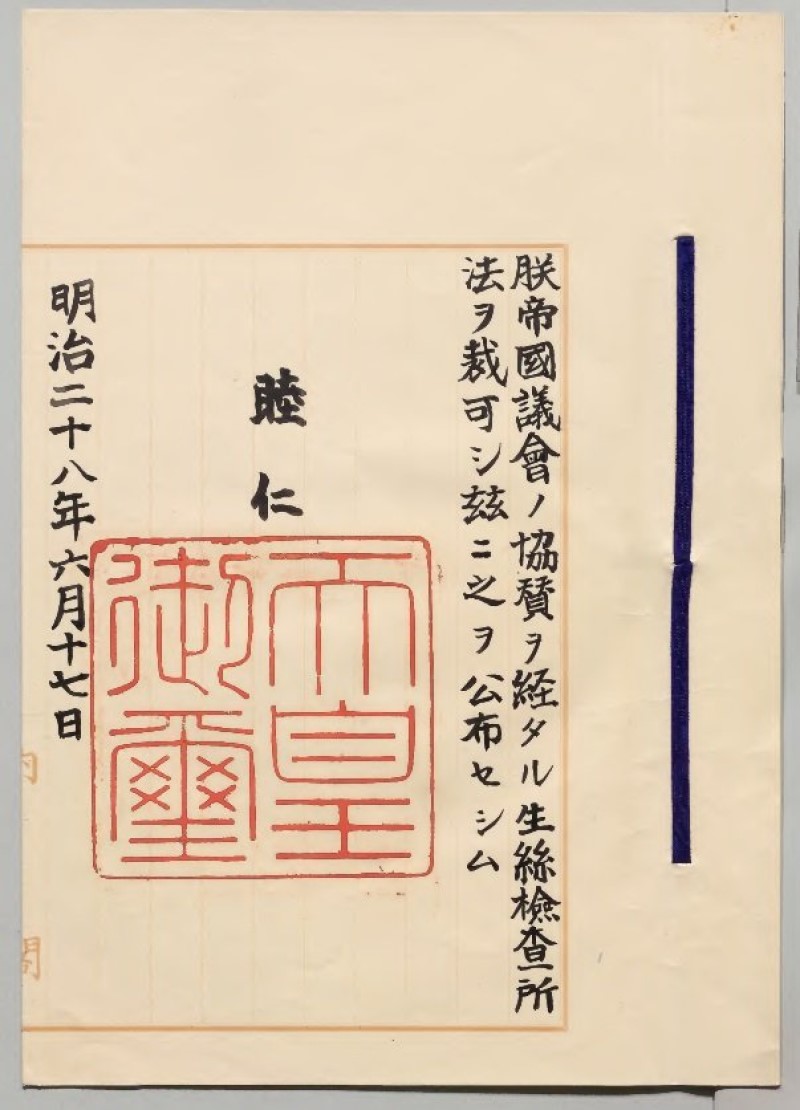 朕帝國議會ノ協賛ヲ経タル生絲檢查所
法ヲ裁可シ玆ニ之ヲ公布セシム
睦仁
天皇
御璽
明治二十八年六月十七日
内閣